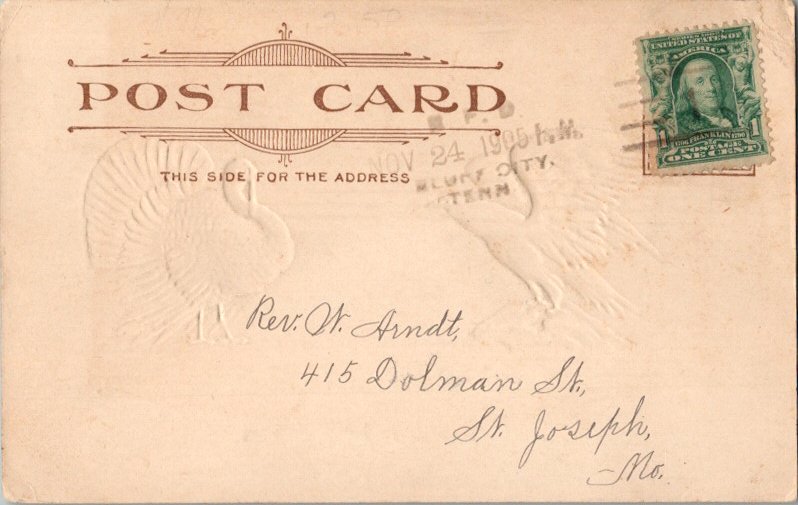 POST CARD
THIS SIDE FOR THE ADDRESS
R. F. D.
NOV 24 1905 P.M.
BLUFF CITY,
TENN
SERIES 1902
UNITED STATES OF
AMERICA
1706 FRANKLIN 1790
1 POSTAGE 1
ONE CENT
Rev. W. Arndt,
415 Dolman St,
St. Joseph,
Mo.